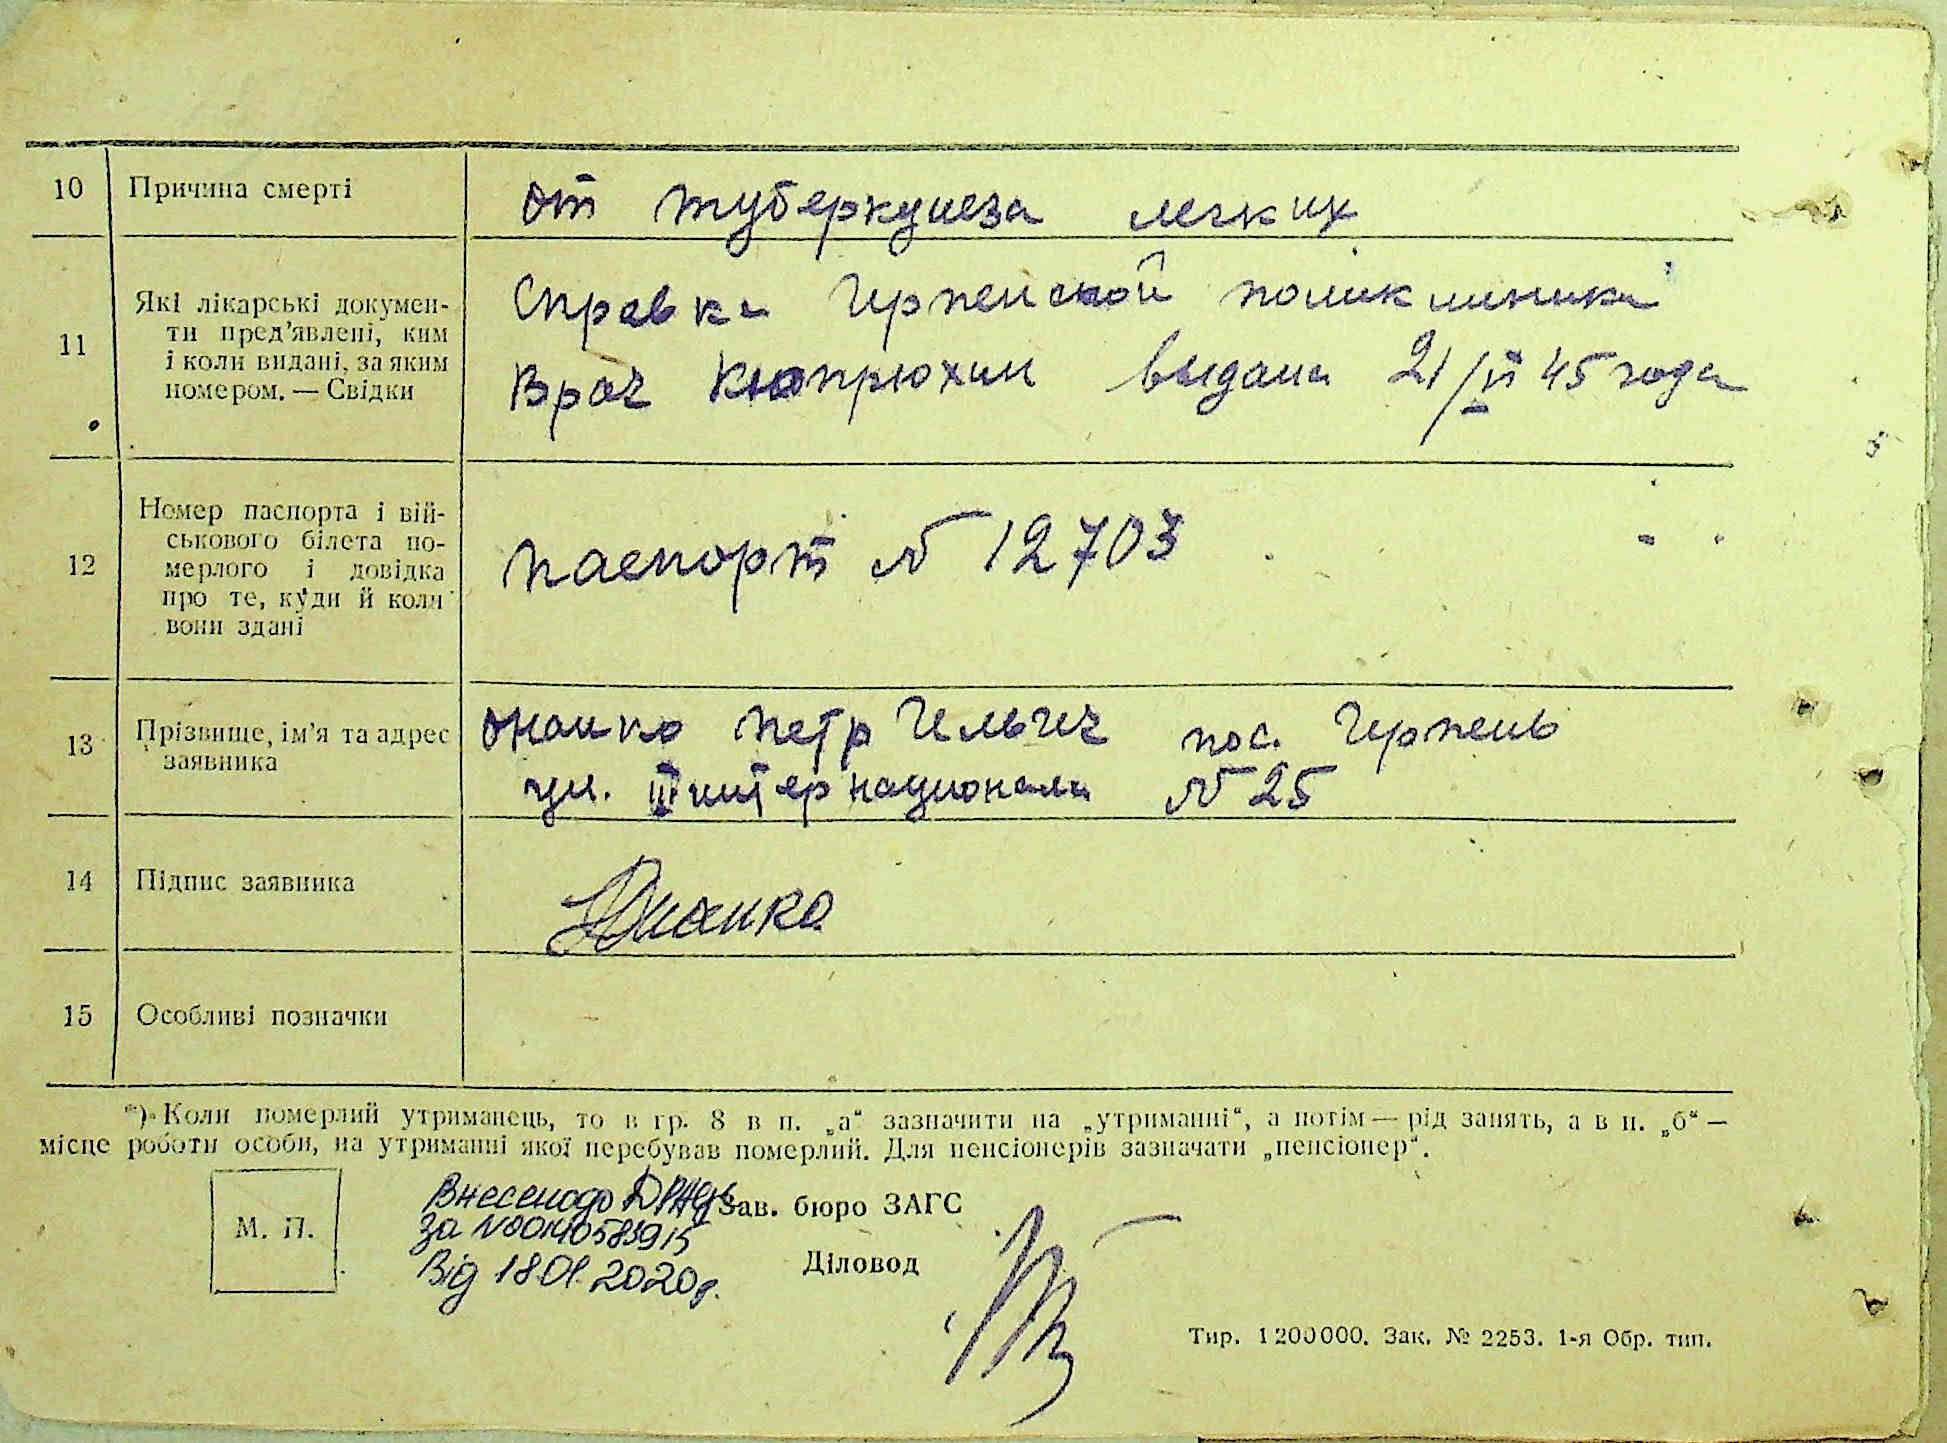 10 Причина смерті от туберкулеза легких
11 Які лікарські докумен-
ти пред'явлені, ким
і коли видані, за яким
номером. — Свідки
Справка Ирпенской поликлиники
Врач выдана 21/VI 45 года
12 Номер паспорта і вій-
ськового білета по-
мерлого і довідка
про те, куди й коли
вони здані
паспорт № 12703
13 Прізвище, ім'я та адрес
заявника
Онанко Петр Ильич пос. Ирпень
ул. III интернационала № 25
14 Підпис заявника Онанко
15 Особливі позначки
*) Коли померлий утриманець, то в гр. 8 в п. „а“ зазначити на „утриманні“, а потім — рід занять, а в п. „б“ —
місце роботи особи, на утриманні якої перебував померлий. Для пенсіонерів зазначати „пенсіонер“.
М. П.
Внесено до ДРАЦС
за №00140583915
Від 18.01.2020р.
Зав. бюро ЗАГС
Діловод
Тир. 1200000. Зак. № 2253. 1-я Обр. тип.